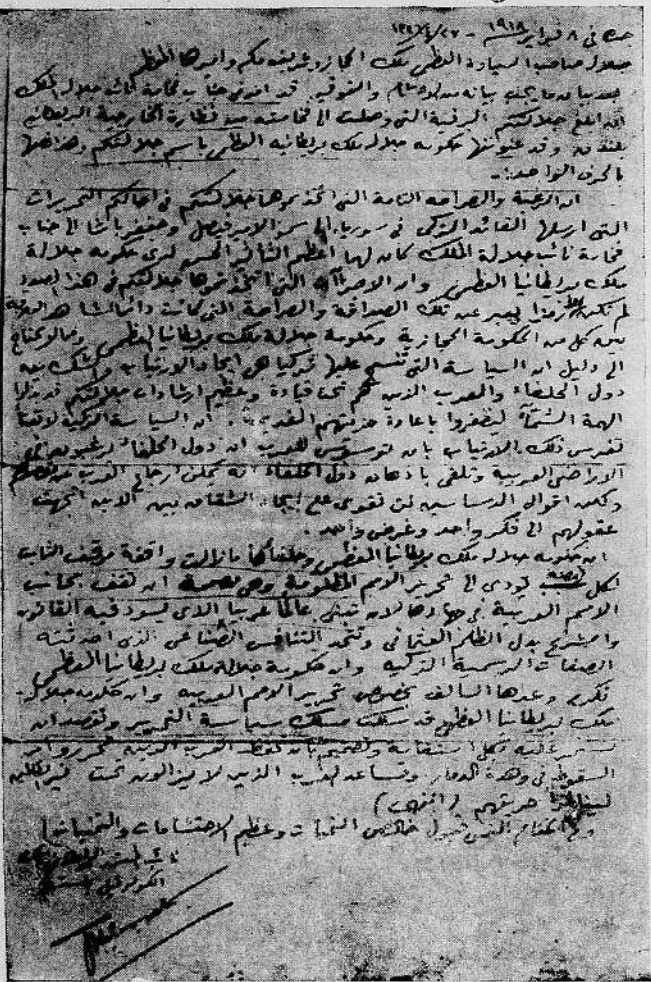 جدة في ٨ فبراير سنة ١٩١٨ - ٢٧/٤/١٣٣٦
جلالة صاحب السيادة العظمى ملك الحجاز وشريف مكة واميرها المعظم
بعد بيان ما يجب بيانه من الاحتشام والتوقير قد امرني جناب فخامة نائب جلالة الملك
ان ابلغ جلالتكم البرقية التي وصلت الى فخامته من نظارة الخارجية البريطانية
بلندن وقد عنونتها حكومة جلالة ملك بريطانيا العظمى باسم جلالتكم وهذا نصها
بالحرف الواحد:
ان الرغبة والصراحة التامة التي اتخذتموها جلالتكم في ارسالكم التحريرات
التي ارسلها القائد التركي في سوريا الى سمو الامير فيصل وجعفر باشا الى جناب
فخامة نائب جلالة الملك كان لها اعظم التأثير الحسن لدى حكومة جلالة
ملك بريطانيا العظمى وان الاجراآت التي اتخذتموها جلالتكم في هذا الصدد
لم تكن الا رمزا يعبر عن تلك الصداقة والصراحة التي كانت دائما شاهد العلاقة
بين كل من الحكومة الحجازية وحكومة جلالة ملك بريطانيا العظمى ومما لا يحتاج
الى دليل ان السياسة التي تنسج عليها تركيا هي ايجاد الارتياب والشك بين
دول الحلفاء والعرب الذين هم تحت قيادة وعظيم ارشادات جلالتكم قد بذلوا
الهمة الشماء ليظفروا باعادة حريتهم القديمة. ان السياسة التركية لا تفتأ
تغرس ذلك الارتياب بان توسوس للعرب ان دول الحلفاء يرغبون في
الاراضي العربية وتلقي باذهان دول الحلفاء انه يمكن ارجاع العرب عن
ولكن اقوال الدساسين لن تقوى على ايجاد الشقاق بين الذين اتجهت
عقولهم الى فكر واحد وغرض واحد.
ان حكومة جلالة ملك بريطانيا العظمى وحلفائها ما زالت واقفة موقف الثابت
لكل نهضة تؤدي الى تحرير الامم المظلومة وهي مصممة ان تقف بجانب
الامم العربية في جهادها لان تبني عالما عربيا الذي يسود فيه القانون
والشرع بدل الظلم العثماني وتتحد التنافس الصناعي الذي احدثته
الصفات الرسمية التركية وان حكومة جلالة ملك بريطانيا العظمى
تكرر وعدها السالف بخصوص تحرير الامم العربية وان حكومة جلالة
ملك بريطانيا العظمى قد سلكت مسلك سياسة التحرير وتقصد ان
تستمر عليه بكل استقامة وتصميم بان تحفظ العرب الذين تحرروا من
السقوط في وهدة الدمار وتساعد العرب الذين لا يزالون تحت نير الظالمين
لينالوا حريتهم (انتهى)
وفي الختام التمس قبول خالص التحيات وعظيم الاحتشامات والتمنيات
نائب المعتمد البريطاني بجدة